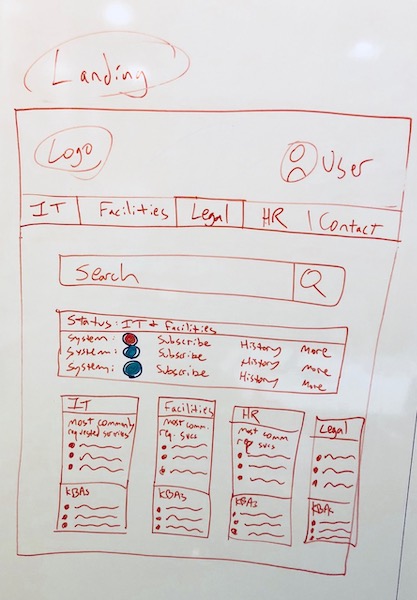 Landing
Logo
User
IT Facilities Legal HR Contact
Search
Status: IT + Facilities
System: Subscribe History More
System: Subscribe History More
System: Subscribe History More
IT
most commonly
requested services
KBAs
Facilities
most com.
req. svcs
KBAs
HR
most comm
req svcs
KBAs
Legal
KBAs